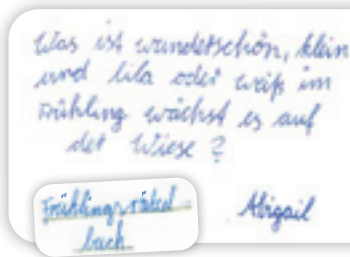 Was ist wunderschön, klein
und lila oder weiß im
Frühling wächst es auf
der Wiese?
Frühlingsrätsel-
buch
Abigail